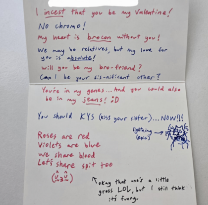 I incest that you be my Valentine!
No chromo!
My heart is brocan without you!
We may be relatives, but my love for
you is absolute!
will you be my bro-friend?
Can I be your sis-nificant other?
You're in my genes... And you could also
be in my jeans! :D
You should KYS (kiss your sister)... NOW!!!
Roses are red
Violets are blue
We share blood
Let's share spit too
okay that one's a little
gross LOL, but I still think
it's funny.